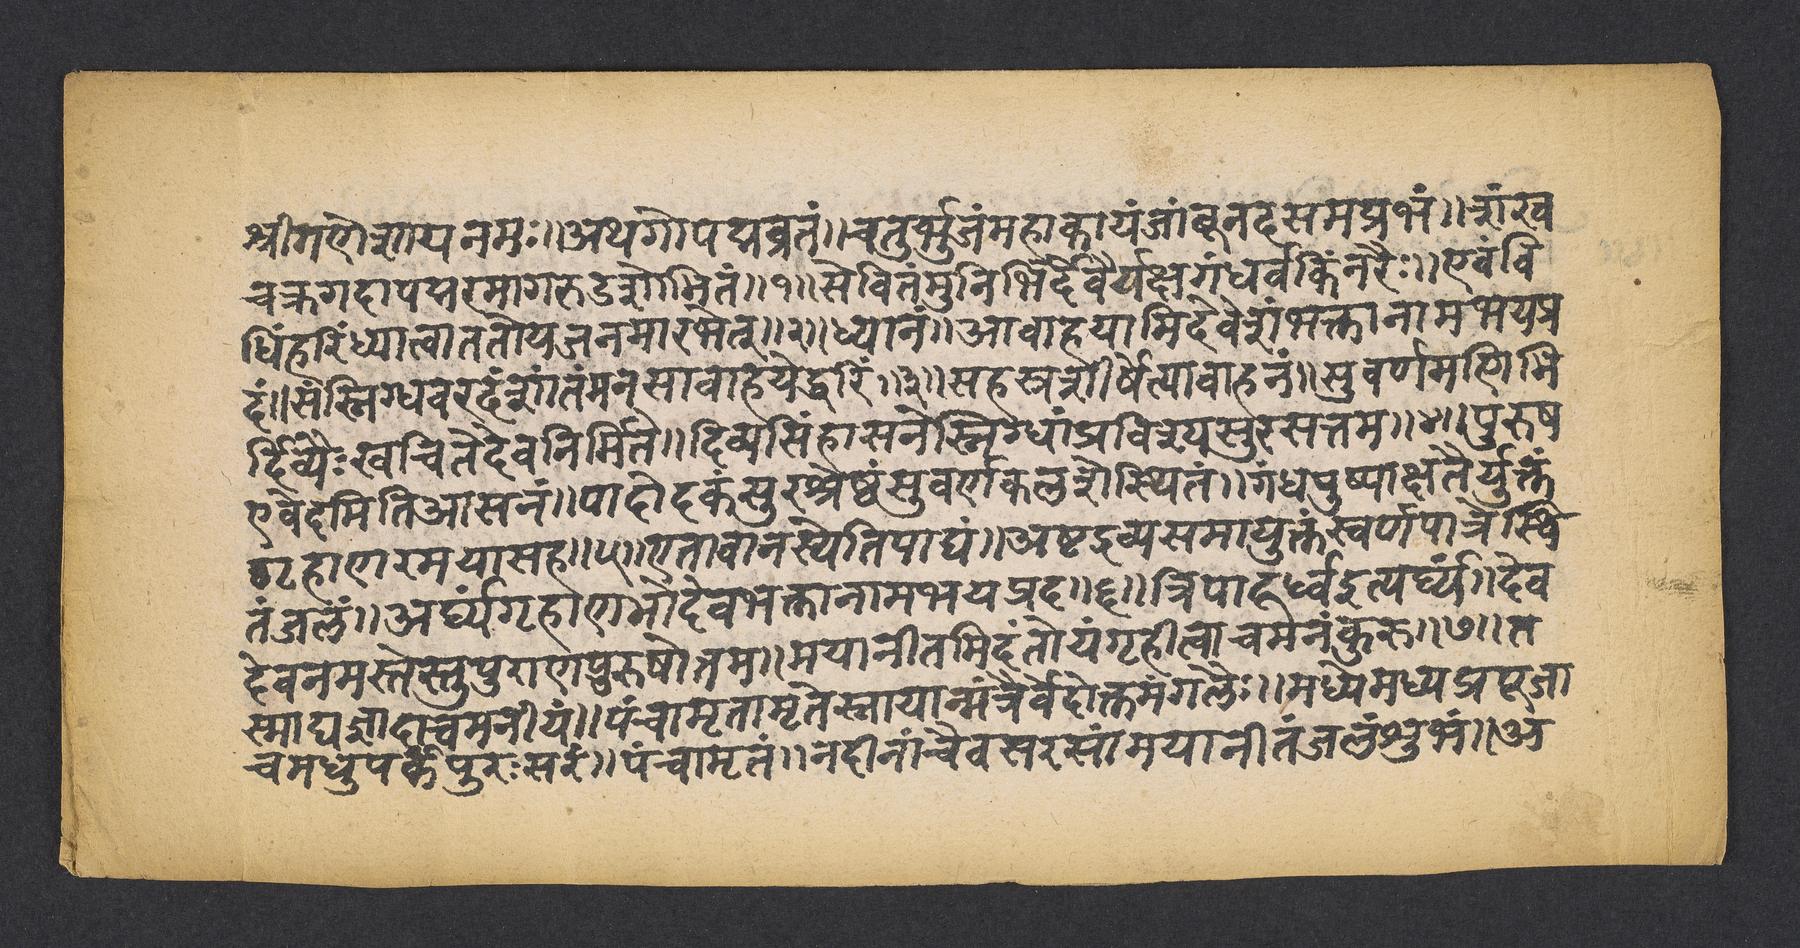 श्रीगणेशाय नमः॥अथगोपद्मव्रतं॥चतुर्भुजंमहाकायंजांबूनदसमप्रभं॥शंख
चक्रगदापद्मरमागरुडशोभितं॥१॥सेवितंमुनिभिर्देवैर्यक्षगंधर्वकिंनरैः॥एवंवि
धिंहरिंध्यात्वाततोयजनमारभेत्॥२॥ध्यानं॥आवाहयामिदेवेशंभक्तानामभयप्र
दं॥संस्निग्धवरदंशांतंमनसावाहयेद्धरिं॥३॥सहस्रशीर्षेत्यावाहनं॥सुवर्णमणिभि
र्दिव्यैःखचितेदेवनिर्मिते॥दिव्यसिंहासनेस्निग्धांप्रविश्यसुरसत्तम॥४॥पुरुष
एवेदमितिआसनं॥पादोदकंसुरश्रेष्ठंसुवर्णकलशेस्थितं॥गंधपुष्पाक्षतैर्युक्तं
गृहाणरमयासह॥५॥एतावानस्येतिपाद्यं॥अष्टद्रव्यसमायुक्तंस्वर्णपात्रेस्थि
तंजलं॥अर्घ्यंगृहाणभोदेवभक्तानामभयप्रद॥६॥त्रिपादूर्ध्वइत्यर्घ्यं॥देव
देवनमस्तेस्तुपुराणपुरुषोत्तम॥मयानीतमिदंतोयंगृहीत्वाचमनंकुरु॥७॥त
स्माद्यज्ञादाचमनीयं॥पंचामृतामृतेस्नायान्मंत्रैर्वेदोक्तमंगलैः॥मध्येमध्येप्रपूजा
चमधुपर्कंपुरःसरं॥पंचामृतं॥नदीनांचैवसरसांमयानीतंजलंशुभं॥अ